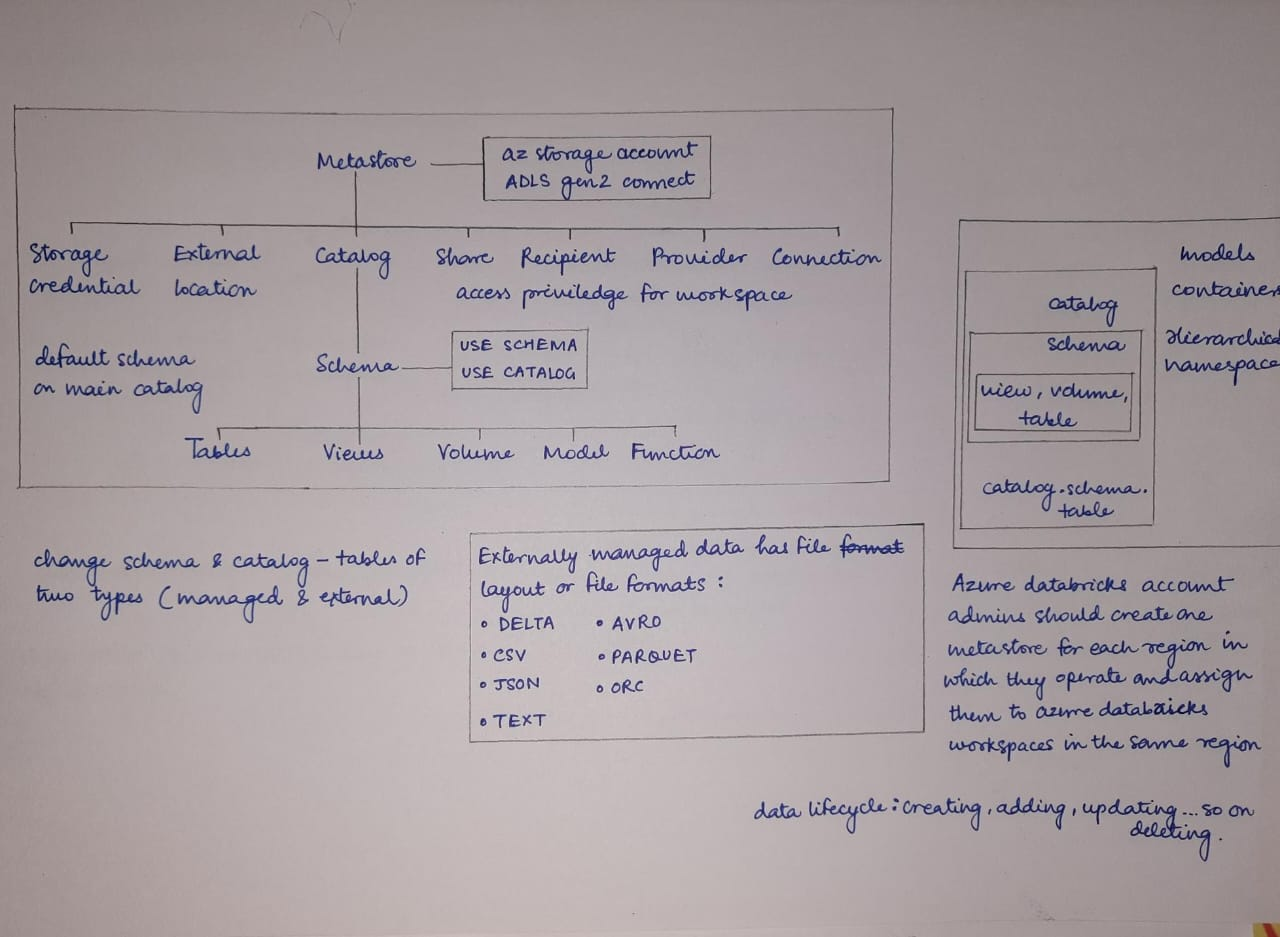 Metastore
az storage account
ADLS gen2 connect
Storage credential
External location
Catalog
Share Recipient Provider Connection
access priviledge for workspace
default schema
on main catalog
Schema
USE SCHEMA
USE CATALOG
Tables Views Volume Model Function
models
container
Hierarchical
namespace
catalog
schema
view, volume,
table
catalog.schema.
table
change schema & catalog - tables of
two types (managed & external)
Externally managed data has file format
layout or file formats :
• DELTA • AVRO
• CSV • PARQUET
• JSON • ORC
• TEXT
Azure databricks account
admins should create one
metastore for each region in
which they operate and assign
them to azure databricks
workspaces in the same region
data lifecycle : creating, adding, updating... so on
deleting.